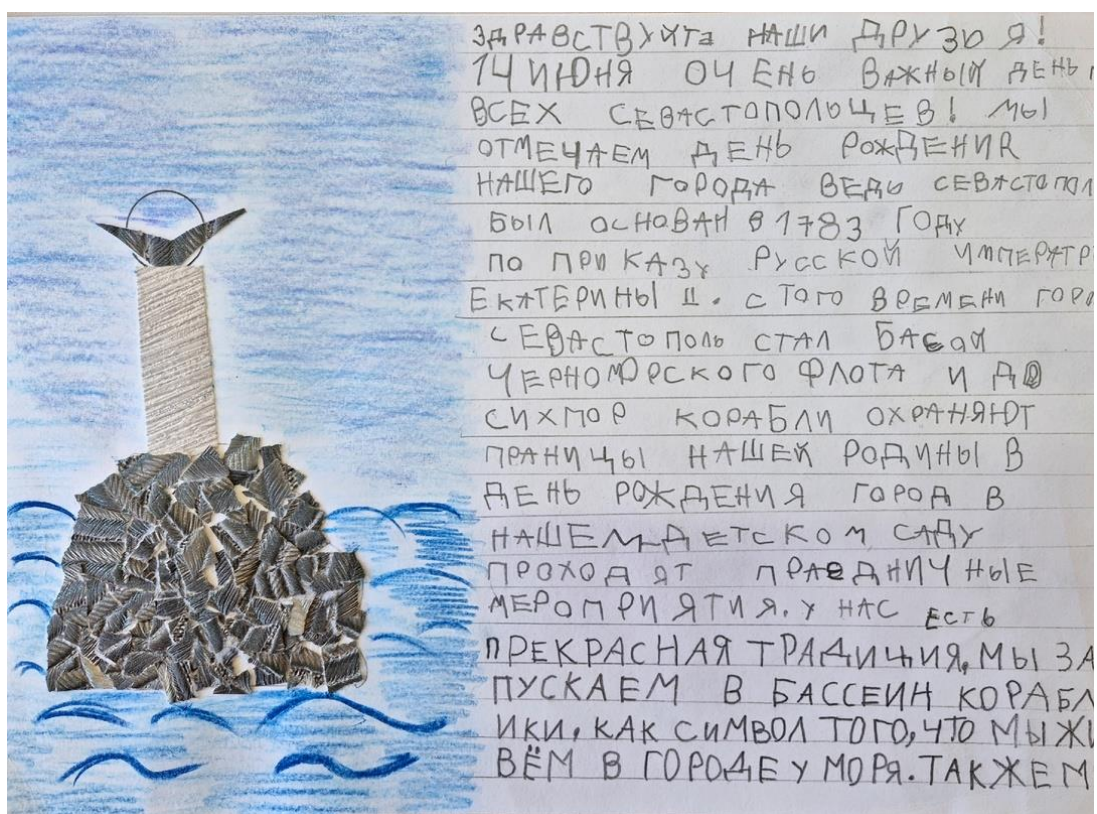 ЗДРАВСТВУЙТЕ НАШИ ДРУЗЬЯ!
14 ИЮНЯ ОЧЕНЬ ВАЖНЫЙ ДЕНЬ
ВСЕХ СЕВАСТОПОЛЬЦЕВ! МЫ
ОТМЕЧАЕМ ДЕНЬ РОЖДЕНИЯ
НАШЕГО ГОРОДА ВЕДЬ СЕВАСТОПОЛ
БЫЛ ОСНОВАН В 1783 ГОДУ
ПО ПРИКАЗУ РУССКОЙ ИМПЕРАТР
ЕКАТЕРИНЫ II. С ТОГО ВРЕМЕНИ ГОРО
СЕВАСТОПОЛЬ СТАЛ БАСОЙ
ЧЕРНОМОРСКОГО ФЛОТА И ДО
СИХПОР КОРАБЛИ ОХРАНЯЮТ
ПРАНИЦЫ НАШЕЙ РОДИНЫ В
ДЕНЬ РОЖДЕНИЯ ГОРОД В
НАШЕМ ДЕТСКОМ САДУ
ПРОХОДЯТ ПРАЕДНИЧНЫЕ
МЕРОПРИЯТИЯ. У НАС ЕСТЬ
ПРЕКРАСНАЯ ТРАДИЦИЯ, МЫ ЗА
ПУСКАЕМ В БАССЕИН КОРАБЛ
ИКИ, КАК СИМВОЛ ТОГО, ЧТО МЫ ЖИ
ВЁМ В ГОРОДЕ У МОРЯ. ТАКЖЕ М